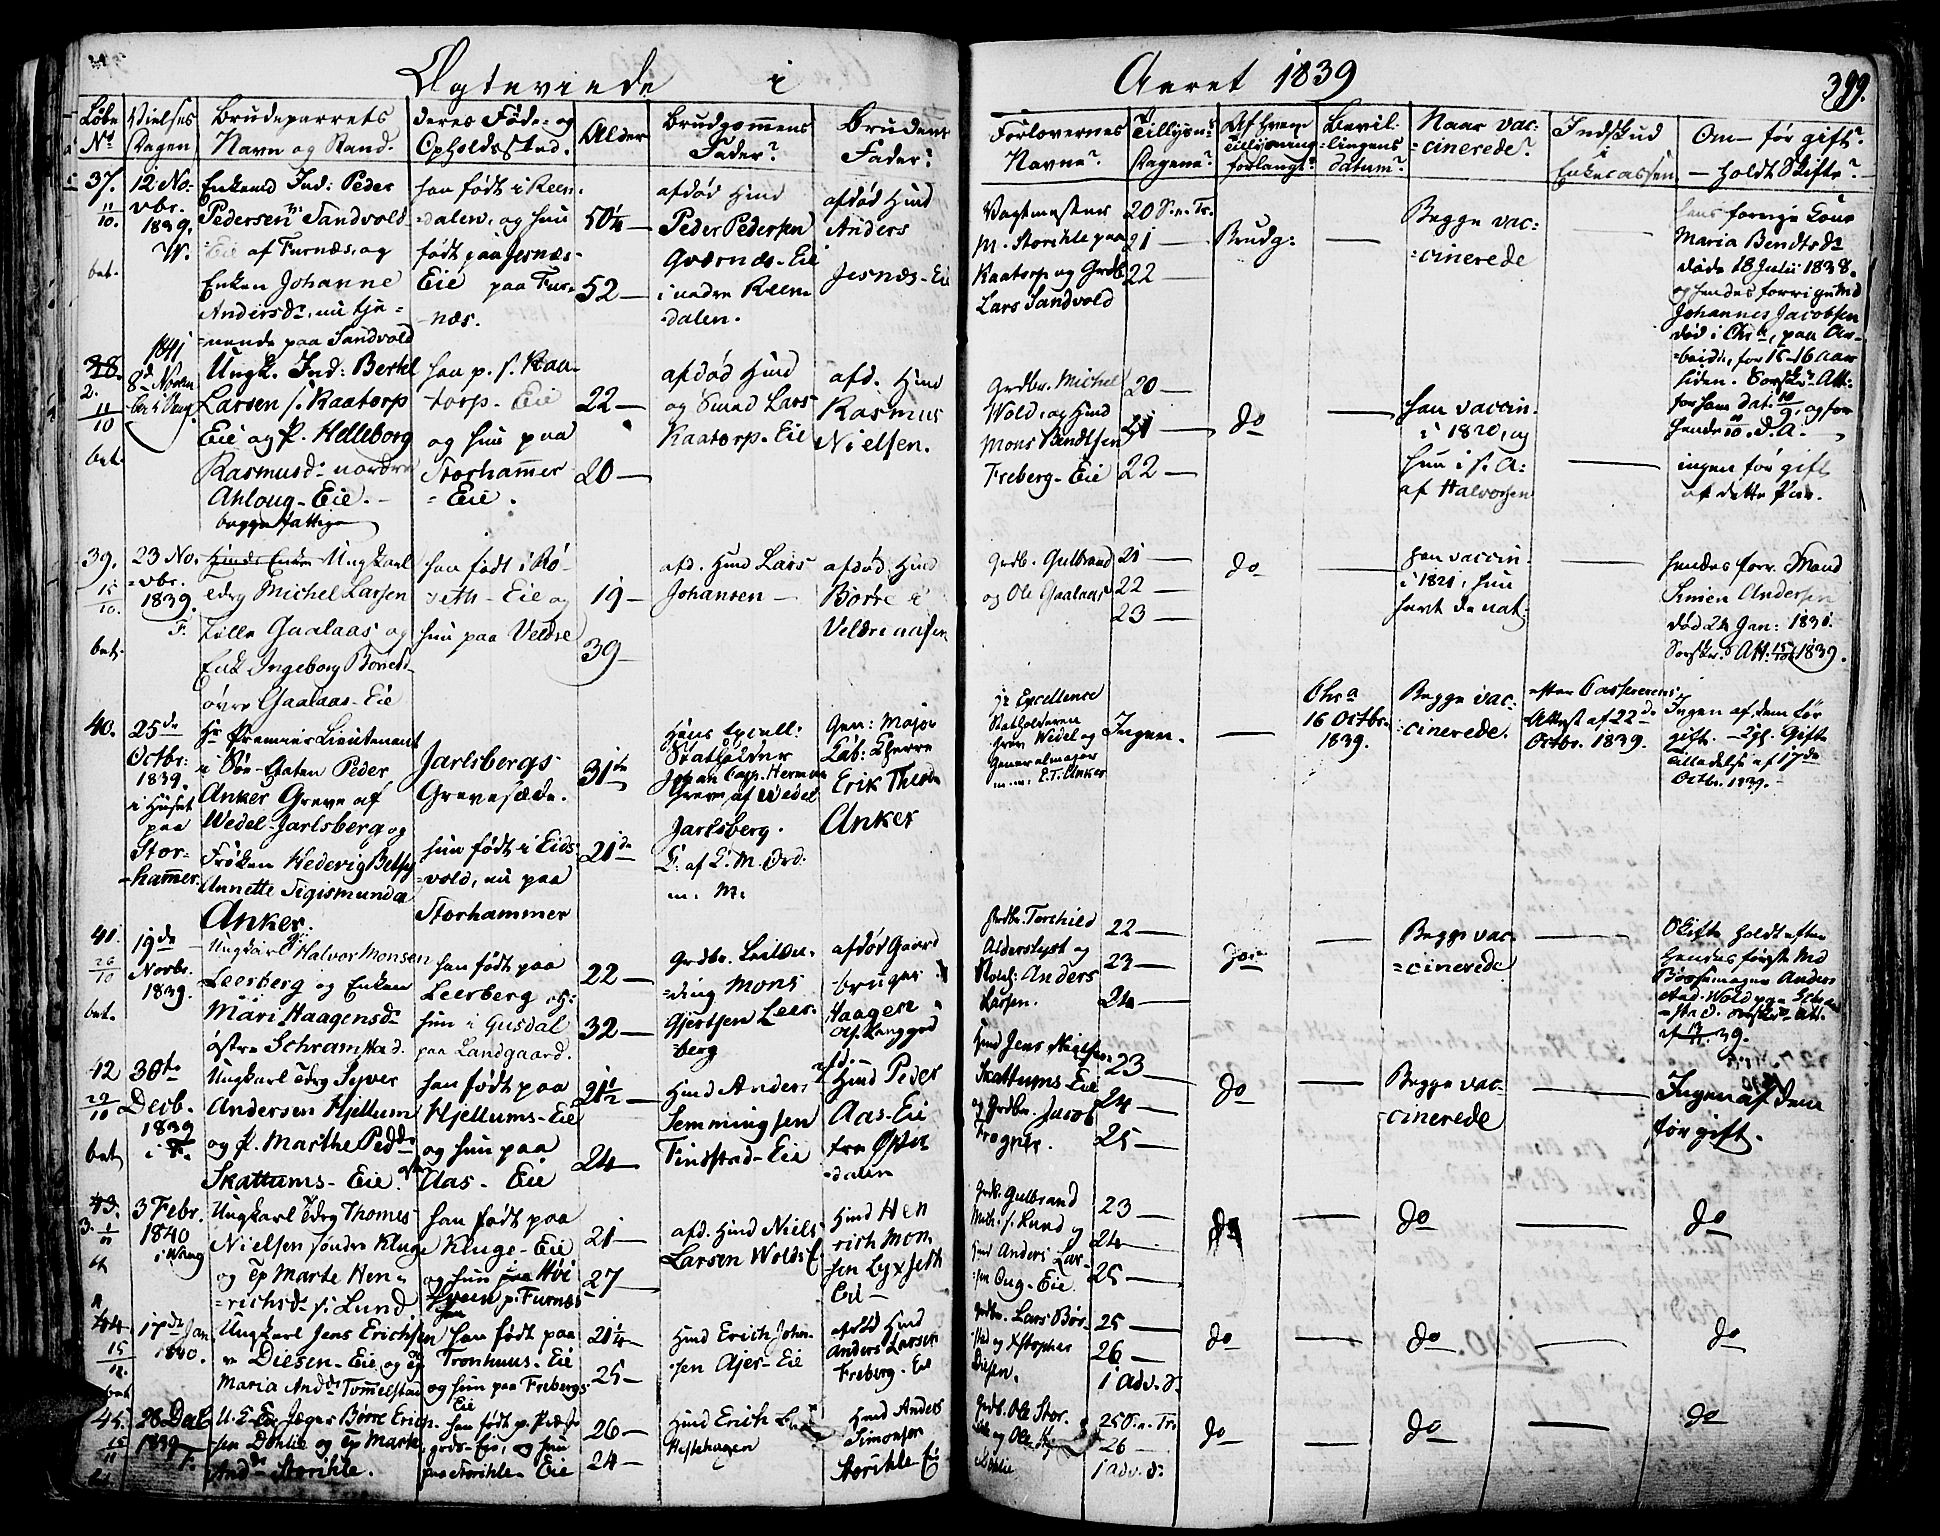 Ægteviede i Aaret 1839
399.
Løbe No
Vielses Dagen
Brudeparrets Navn og Stand.
deres Føde- og Opholdssted.
Alder
Brudgommens Fader?
Brudens Fader?
Forlovernes Navne?
Tillysns Dagene?
Af hvem Tillysning forlangt?
Bevillingens datum?
Naar vaccinerede?
Indskud i Enkecassen
Om før gift?
holdt Skifte?
37.
11/10.
bet.
12 No=
vbr.
1839.
Enkemd Ind: Peder
Pedersen Sandvold
Eie af Furnæs, og
Enken Johanne
Andersd., nu tje=
nende paa Sandvold
han født i Reen=
dalen, og hun
født paa Jesnæs=
Eie paa Fur=
næs.
50¼
52
afdød Hmd
Peder Pedersen
Qværnæs-Eie
i nedre Reen
dalen.
afdød Hmd
Anders
Jesnæs-Eie
Vagtmester
M. Storihle paa
Kaatorp og Grdb.
Lars Sandvold
20 S.e.Tr.
21
22
Brudg:
Begge vac=
cinerede
hans forrige Kone
Maria Bendtsd.
døde 18 Julii 1838.
og hendes forrige Md
Johannes Jacobsen
død i Chra, paa Ar=
beide, for 15-16 Aar
siden. Sorskr. Att:
for ham dat. 10/9, og for
hende 10/10. d. A.
38.
2.
11/10
bet.
1841
8d Novem
ber i Vang.
Ungk. Ind: Bertel
Larsen s. Kaatorp
Eie og P. Helleborg
Rasmusd. nordre
Ahloug-Eie.
begge fattige
han p. s. Kaa=
torp-Eie
og hun paa
Storhammer
=Eie.
22
20
afdød Hmd
og Smed Lars
Kaatorp-Eie
afd. Hmd
Rasmus
Nielsen.
Grdbr. Michel
Wold, og Hmd
Mons Bendtsen
Freberg-Eie
20
21
22
do
han vaccin.
i 1820, og
hun i s. A:
af Halvorsen
ingen før gift
af dette Par.
39.
15/10.
bet.
23 No.
vbr.
1839.
F.
Ungkarl
Michel Larsen
Lille Gaalaas og
Enk. Ingeborg Børresd.
øvre Gaalaas-Eie
han født i Rø=
seth-Eie og
hun paa Veldre
19
39
afd. Hmd Lars
Johansen
afdød Hmd
Børre i
Veldreaasen
Grdb. Gulbrand
og Ole Gaalaas
21
22
23
do
han vaccin.
i 1821, hun
havt de nat.
hendes forr. Mand
Simen Andersen
død 24 Jan: 1831.
Sorskr.s Att. 15/10 1839.
40.
25de
Octbr:
1839.
i Huset
paa
Stor=
hammer.
Hr Premier Lieutenant
i Søe-Etaten Peder
Anker Greve af
Wedel-Jarlsberg og
Frøken Hedevig Betsy
Annette Sigismunda
Anker.
Jarlsbergs
Grevesæde.
hun født i Eids=
vold, nu paa
Storhammer
31te
21de
Hans Excell:
Statholder
Johan Casp. Herman
Greve af Wedel
Jarlsberg.
m. M.
Gen: Major
Cab: Cherre
Erik Theod.
Anker
Hr Excellence
Statholderen
Grev Wedel og
Generalmajor
m.m. E.T. Anker
Ingen.
Chra
16 Octbr.
1839.
Begge vac=
cinerede.
efter Cassererens
Attest af 22de
Octbr. 1839.
Ingen af dem før
gift. Kgl. Gifte
Tilladelse af 17de
Octbr. 1839.
41.
26/10
bet.
19de
Novbr.
1839.
Ungkarl Halvor Monsen
Leerberg og Enken
Mari Haagensd.
østre Schramstad.
han født paa
Leerberg og
hun i Gusdal
paa Landgaard.
22
32
Grdbr. Leilæn=
ding Mons
Gjertsen Leer=
berg
afdød Gaard
bruger
Haagen
Grdbr. Torchild
Alderslyst og
Anders
Larsen.
22
23
24
Begge vac=
cinerede
Skifte holdt efter
hendes første Md
Bøssemager Anders
42
29/10
bet.
30te
Decb.
1839
i F.
Ungkarl Syver
Andersen Kjellum
og P. Marthe Pedd.
Skattums-Eie.
han født paa
Kjellums-Eie
og hun paa
Aas-Eie
21½
24
Hmd Anders
Semmingsen
Findstad-Eie
Hmd Peder
Aas-Eie
fra Øster
dalen
Hmd Jens Nielsen
Skattums-Eie
og Grdbr. Jacob
Frogner.
23
24
25
do
Begge vac=
cinerede
Ingen af dem
før gift.
43.
3.
3 Febr.
1840
i Vang
Ungkarl Thomes
Nielsen søndre Kluge
og P Marte Hen=
richsd. s. Lund
han født paa
Kluge-Eie
og hun
p. Furnæs
21
27
afd. Hmd Niels
Larsen Wolds
Hmd Hen
rich Mon
sen Lyxseth
Eie
Grdb. Gulbrand
s. Lund og
Hmd Anders Lar=
sen Oug-Eie.
23
24
25
do
do
do
44
15/12.
bet
17de Jan
1840.
Ungkarl Jens Erichsen
Diesen-Eie og P
Maria Andd. Tommelstad
han født paa
Tronhuus-Eie
og hun paa Frebergs
Eie
21¼
25
Hmd Erich John=
sen Ajer-Eie
afdød Hmd
Anders Larsen
Freberg-Eie
Grdbr. Lars Bør=
stad og Xstopher
Diesen.
25
26
1 Adv. S.
do
do
do
45.
28 Decb
1839
F.
Jæger Børre Erich=
sen Dohlie og P Marte
Andd. Storihle.
han født p. Præste
grds-Eie, og hun
paa Storihle-Eie
26
24
Hmd Erich
Hestehagen
Hmd Anders
Simonsen
Storihle Ei
Grdb. Ole Stor.
ihle og Ole
Dohlie
25 S.e.Tr.
26
1 Adv. S.
do
do
do